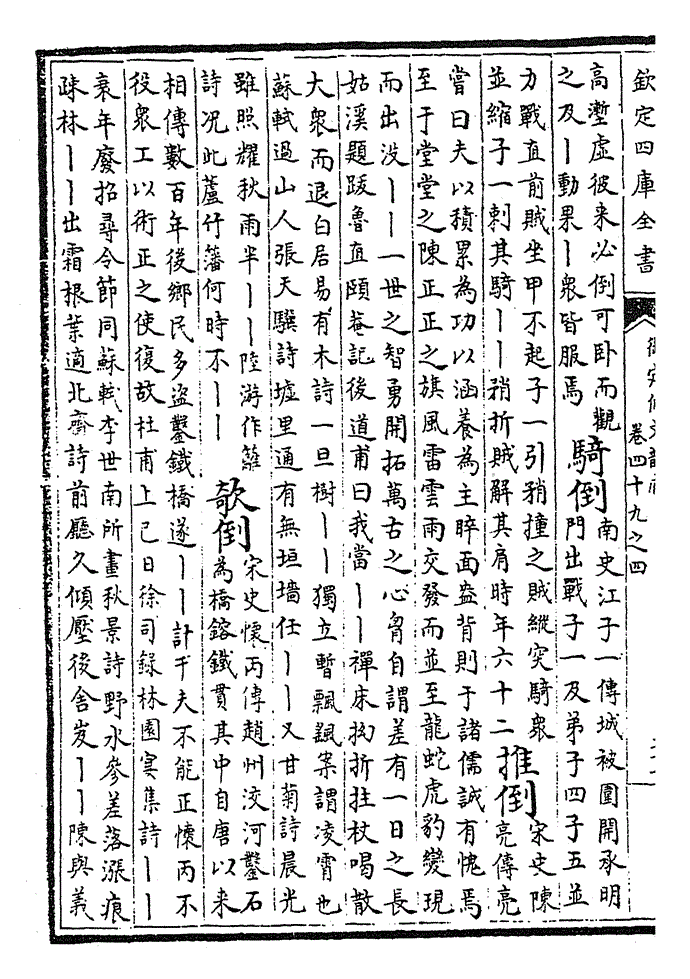 欽定四庫全書
御定佩文韻府
卷四十九之四
高壍虛彼来必倒可卧而觀
之及丨動果丨衆皆服焉
騎倒
南史江子一傳城被圍開承明
門出戰子一及弟子四子五並
力戰直前賊坐甲不起子一引矟撞之賊縱突騎衆
並縮子一刺其騎丨丨矟折賊解其肩時年六十二
推倒
宋史陳
亮傳亮
嘗曰夫以積累為功以涵養為主睟面盎背則于諸儒誠有愧焉
至于堂堂之陳正正之旗風雷雲雨交發而並至龍蛇虎豹變現
而出没丨丨一世之智勇開拓萬古之心胷自謂差有一日之長
姑溪題跋魯直頤菴記後道甫曰我當丨丨禪床拗折拄杖喝散
大衆而退白居易有木詩一旦樹丨丨獨立暫飄颻案謂凌霄也
蘇軾過山人張天驥詩墟里通有無垣墻任丨丨又甘菊詩晨光
雖照耀秋雨半丨丨陸游作籬
詩况此蘆竹藩何時不丨丨
欹倒
宋史懷丙傳趙州洨河鑿石
為橋鎔鐵貫其中自唐以来
相傳數百年後鄉民多盗鑿鐵橋遂丨丨計千夫不能正懷丙不
役衆工以術正之使復故杜甫上巳日徐司録林園宴集詩丨丨
衰年廢招尋令節同蘇軾李世南所畫秋景詩野水參差落漲痕
疎林丨丨出霜根葉適北齋詩前廳久傾壓後舍岌丨丨陳與義